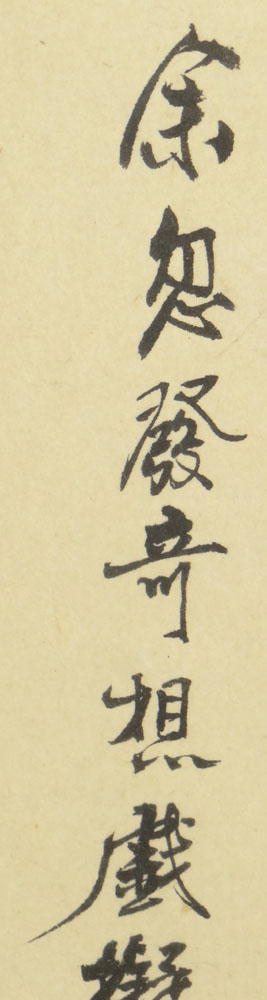 余忽發奇想戲擬